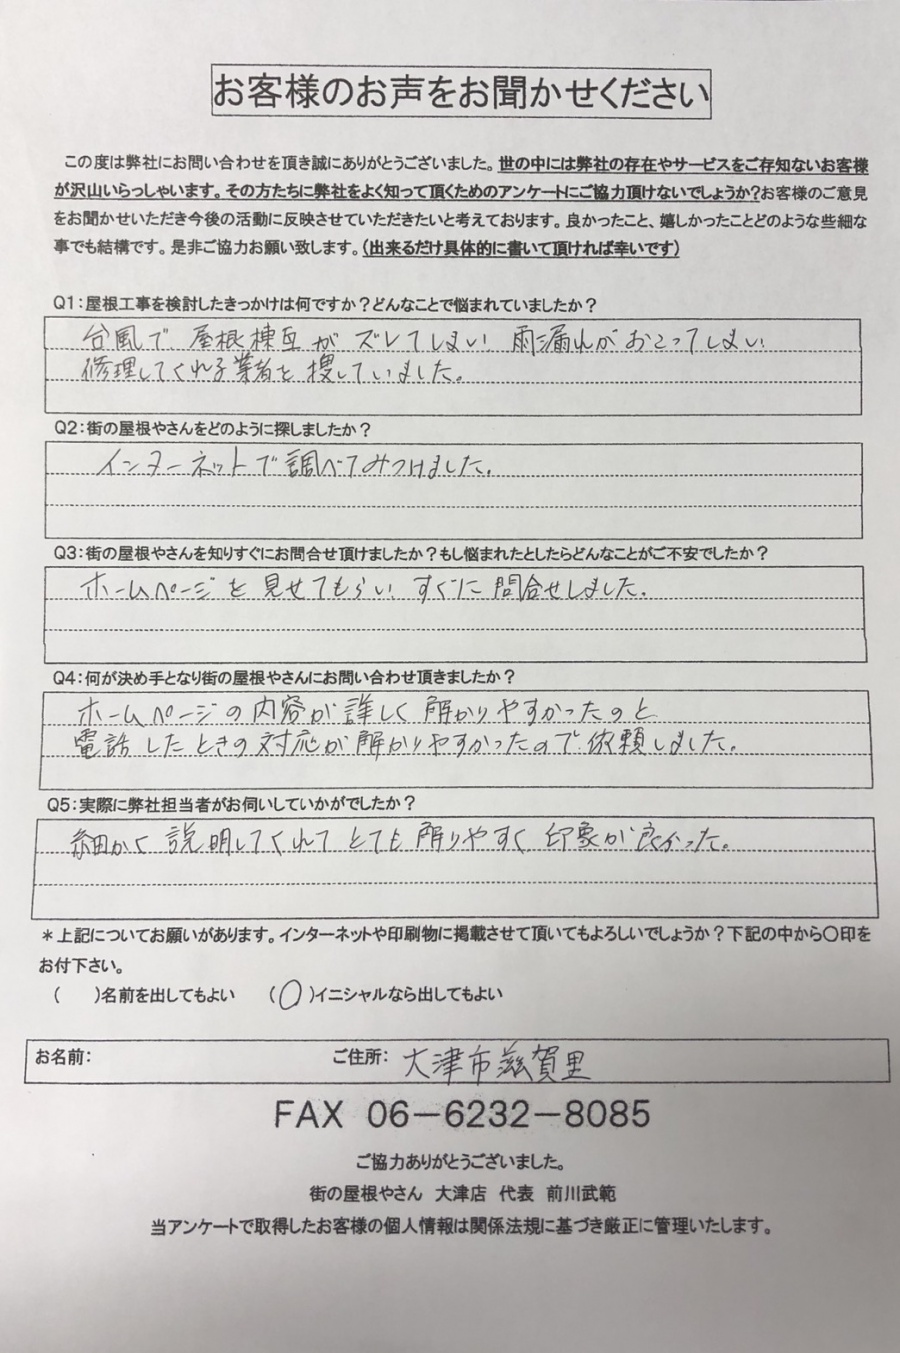 お客様のお声をお聞かせください
この度は弊社にお問い合わせを頂き誠にありがとうございました。世の中には弊社の存在やサービスをご存知ないお客様
が沢山いらっしゃいます。その方たちに弊社をよく知って頂くためのアンケートにご協力頂けないでしょうか?お客様のご意見
をお聞かせいただき今後の活動に反映させていただきたいと考えております。良かったこと、嬉しかったことどのような些細な
事でも結構です。是非ご協力お願い致します。(出来るだけ具体的に書いて頂ければ幸いです)
Q1:屋根工事を検討したきっかけは何ですか?どんなことで悩まれていましたか?
台風で、屋根棟瓦がズレてしまい、雨漏れがおこってしまい、
修理してくれる業者を捜していました。
Q2:街の屋根やさんをどのように探しましたか?
インターネットで調べてみつけました。
Q3:街の屋根やさんを知りすぐにお問合せ頂けましたか?もし悩まれたとしたらどんなことがご不安でしたか?
ホームページを見せてもらい、すぐに問合せしました。
Q4:何が決め手となり街の屋根やさんにお問い合わせ頂きましたか?
ホームページの内容が詳しく解かりやすかったのと
電話したときの対応が解かりやすかったので依頼しました。
Q5:実際に弊社担当者がお伺いしていかがでしたか?
細かく説明してくれてとても解りやすく印象が良かった。
*上記についてお願いがあります。インターネットや印刷物に掲載させて頂いてもよろしいでしょうか?下記の中から〇印を
お付下さい。
( )名前を出してもよい (〇)イニシャルなら出してもよい
お名前: ご住所: 大津市滋賀里
FAX 06-6232-8085
ご協力ありがとうございました。
街の屋根やさん 大津店 代表 前川武範
当アンケートで取得したお客様の個人情報は関係法規に基づき厳正に管理いたします。